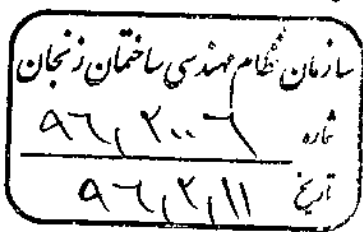 سازمان نظام مهندسی ساختمان زنجان
شماره ۹۶,۲۰۰۶
تاریخ ۹۶,۲,۱۱